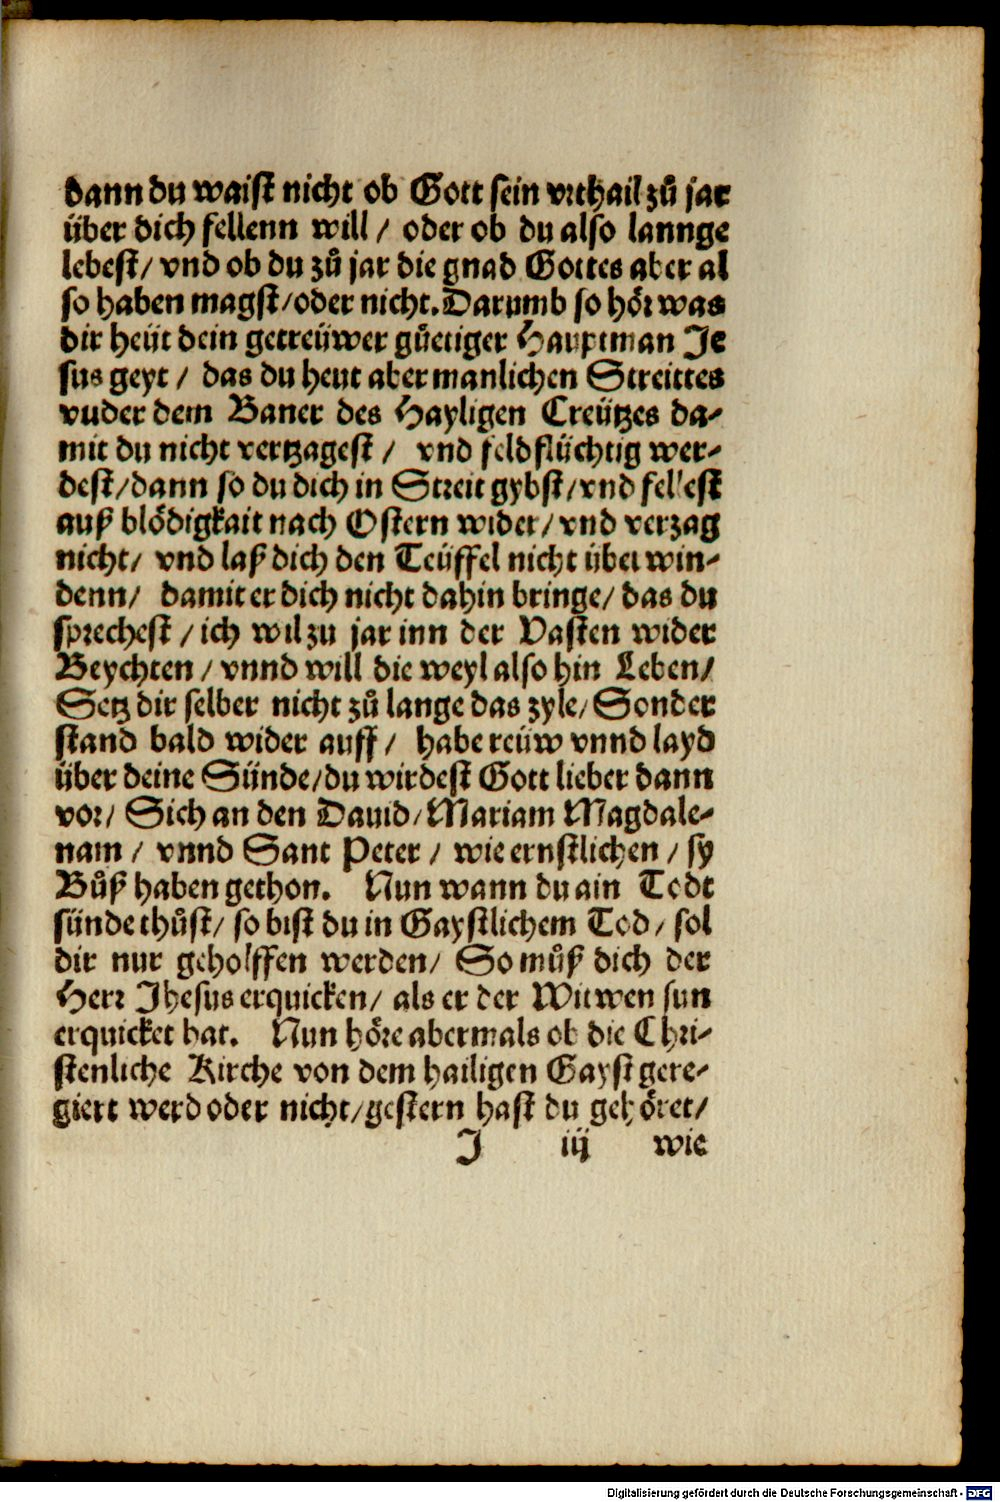 dann du waist nicht ob Gott sein vrthail zů jar
über dich fellenn will / oder ob du also lannge
lebest/ vnd ob du zů jar die gnad Gottes aber al
so haben magst/oder nicht. Darumb so hör was
dir heüt dein getreüwer gůetiger Hauptman Je
sus geyt / das du heut aber manlichen Streittes
vuder dem Baner des Hayligen Creützes da-
mit du nicht vertzagest / vnd feldflüchtig wer-
dest/dann so du dich in Streit gybst/vnd fellest
auß blödigkait nach Ostern wider/ vnd verzag
nicht/ vnd laß dich den Teüffel nicht überwin-
denn/ damit er dich nicht dahin bringe/ das du
sprechest / ich wil zu jar inn der Vasten wider
Beychten / vnnd will die weyl also hin Leben/
Setz dir selber nicht zů lange das zyle/ Sonder
stand bald wider auff / habe reüw vnnd layd
über deine Sünde/du wirdest Gott lieber dann
vor/ Sich an den Dauid/Mariam Magdale-
nam / vnnd Sant Peter / wie ernstlichen / sy
Bůß haben gethon. Nun wann du ain Todt
sünde thůst/ so bist du in Gaystlichem Tod/ sol
dir nur geholffen werden/ So můß dich der
Herr Jhesus erquicken/ als er der Witwen sun
erquicket hat. Nun höre abermals ob die Chri-
stenliche Kirche von dem hailigen Gayst gere-
giert werd oder nicht/gestern hast du gehöret/
J iij wie
Digitalisierung gefördert durch die Deutsche Forschungsgemeinschaft - DFG